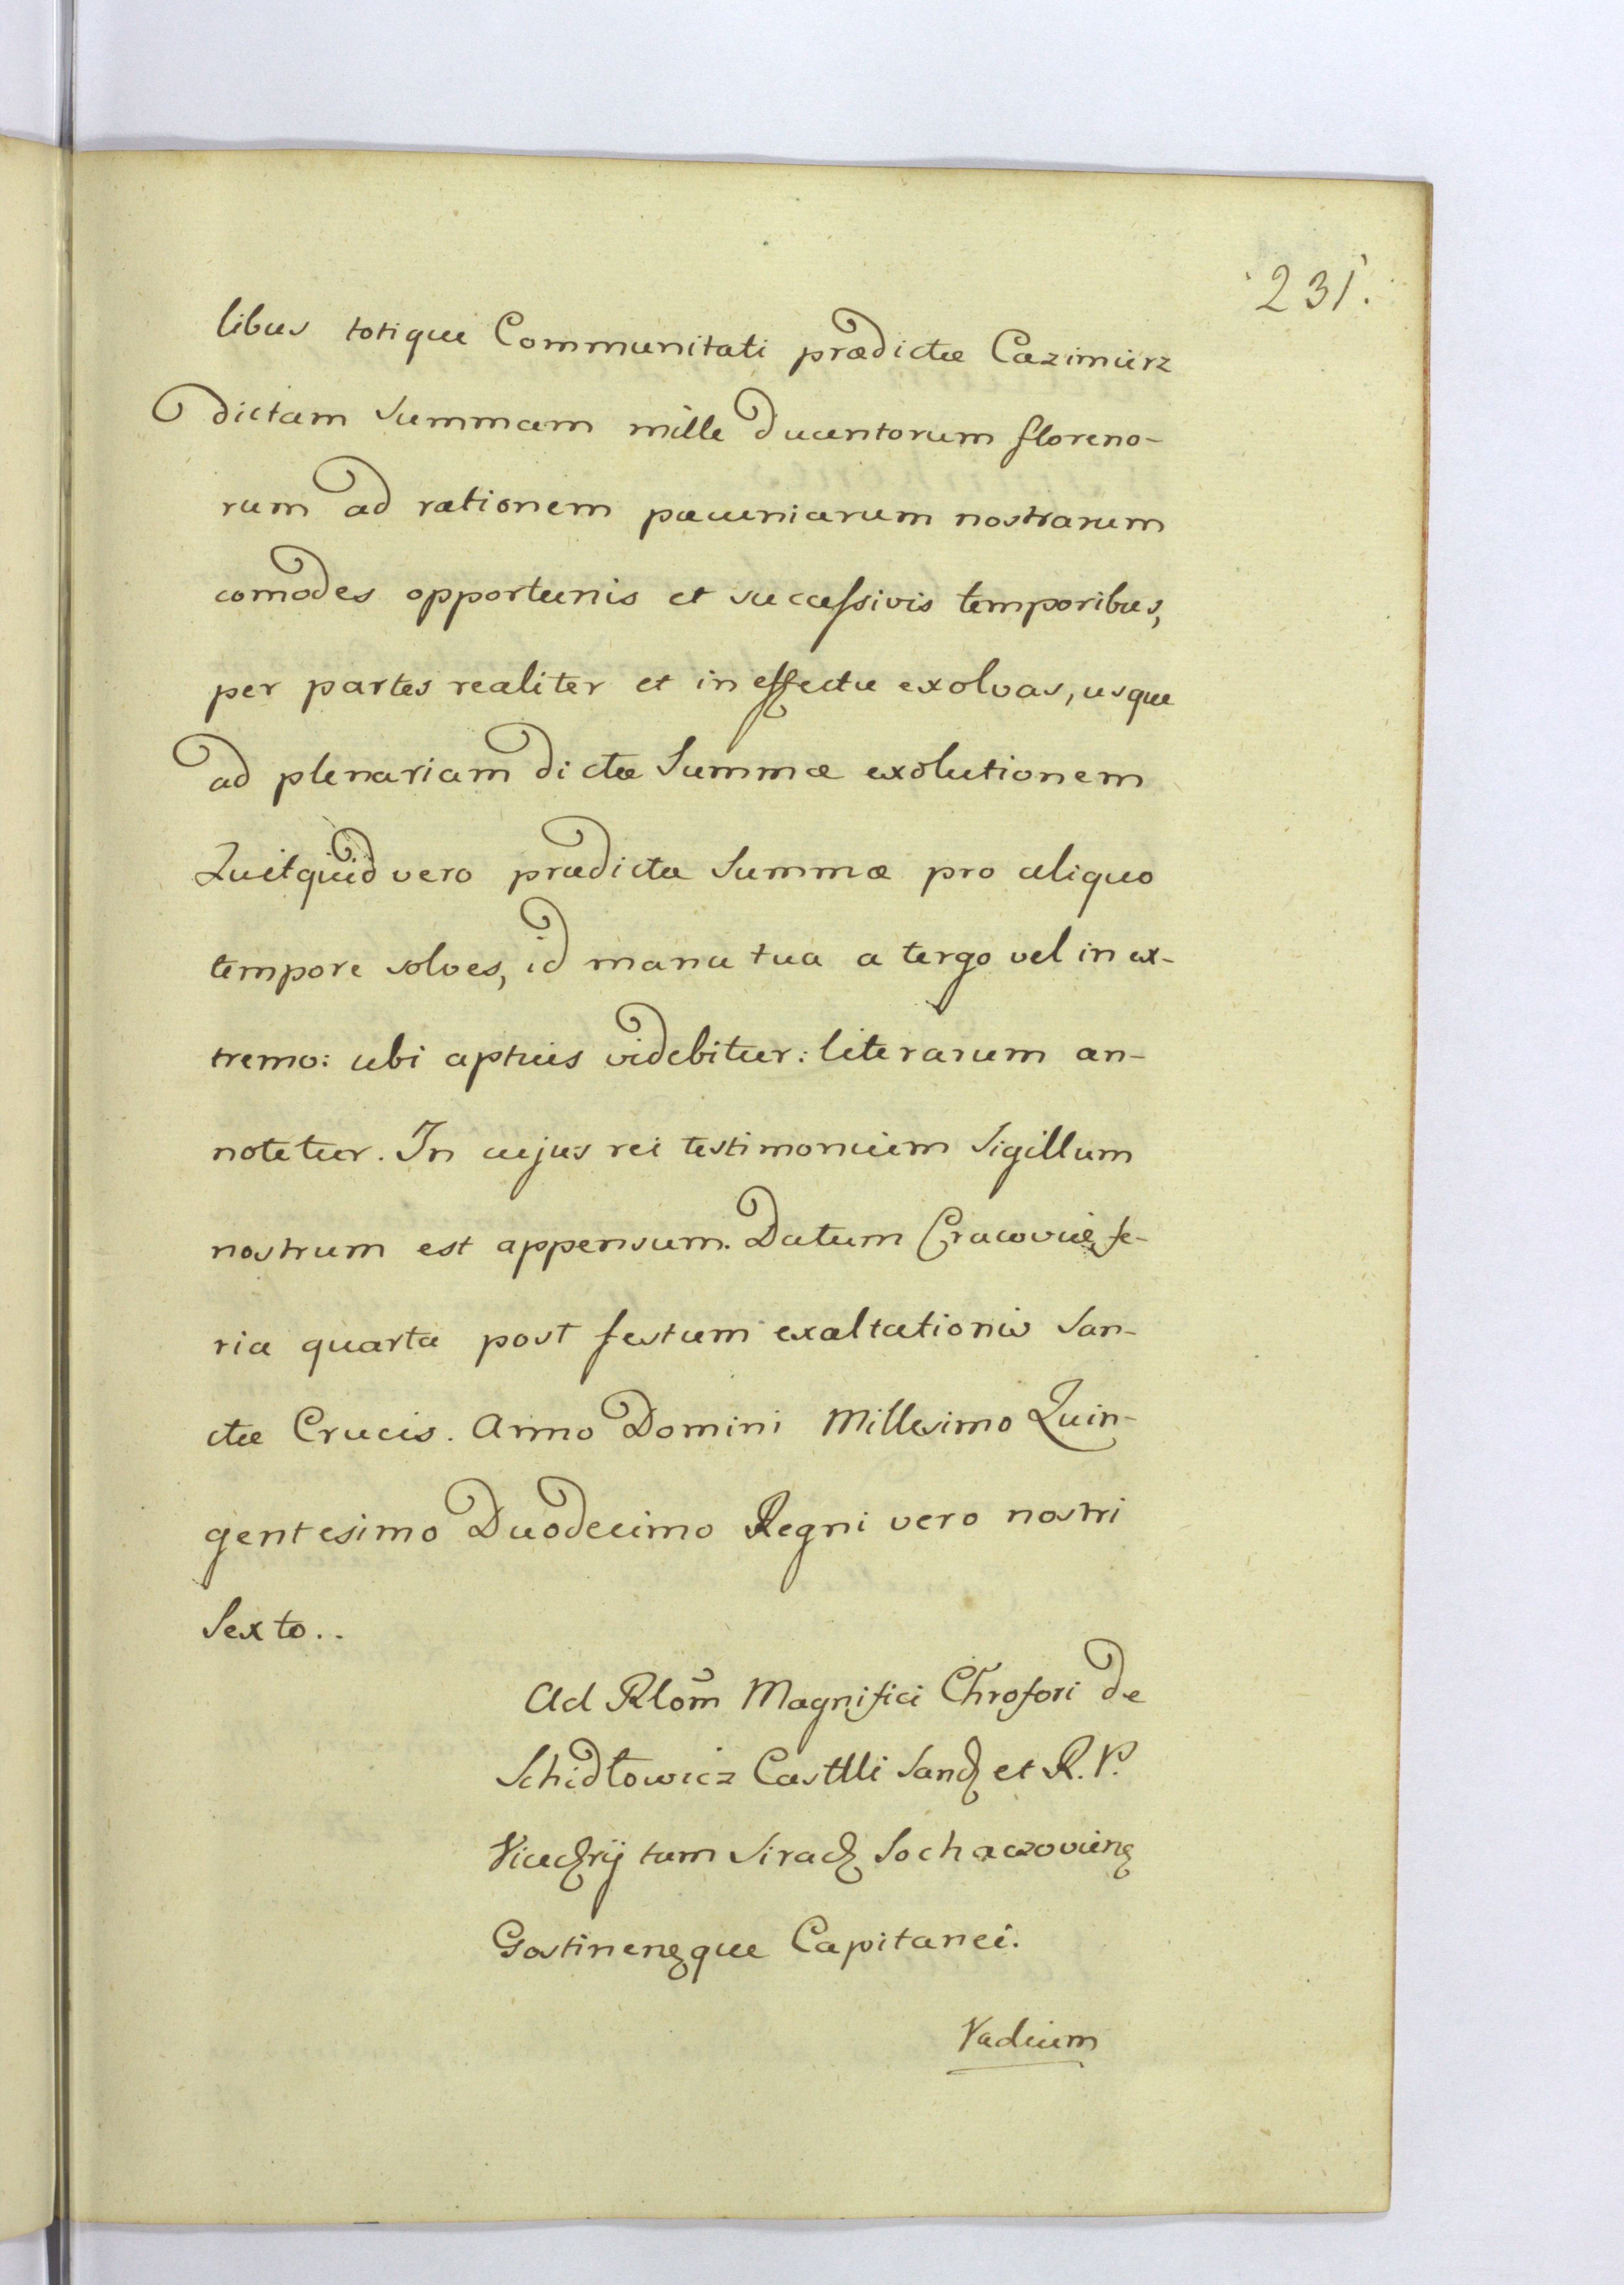 231.
libus totique Communitati prædictæ Cazimirz
dictam Summam mille ducentorum floreno-
rum ad rationem pæcuniarum nostrarum
comodes opportunis et successivis temporibus,
per partes realiter et in effectu exolvas, usque
ad plenariam dictæ Summæ exolutionem
Quitquid vero prædictæ Summæ pro aliquo
tempore solves, id manu tua a tergo vel in ex-
tremo: ubi aptius videbitur: literarum an-
notetur. In cujus rei testimonium Sigillum
nostrum est appensum. Datum Cracoviæ fe-
ria quarta post festum exaltationis San-
ctæ Crucis. Anno Domini Millesimo Quin-
gentesimo Duodecimo Regni vero nostri
Sexto..
Ad Rlom̃ Magnifici Chrofori de
Schidłowicz Castlli Sandȝ et R. P.
Vicecȝrij tum Siradȝ Sochaczovienȝ
Gostinenȝque Capitanei.
Vadium